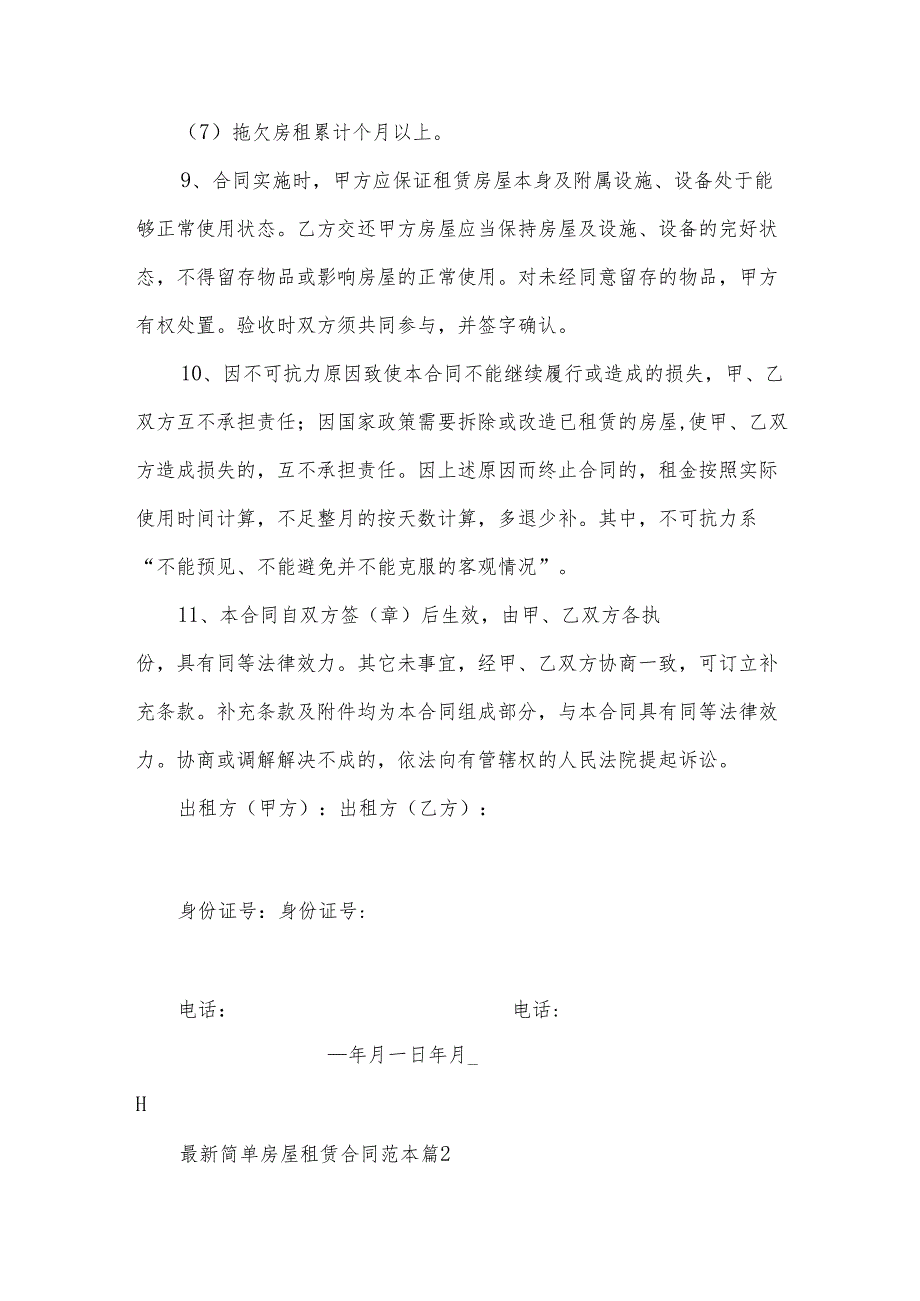 （7）拖欠房租累计个月以上。
9、合同实施时，甲方应保证租赁房屋本身及附属设施、设备处于能
够正常使用状态。乙方交还甲方房屋应当保持房屋及设施、设备的完好状
态，不得留存物品或影响房屋的正常使用。对未经同意留存的物品，甲方
有权处置。验收时双方须共同参与，并签字确认。
10、因不可抗力原因致使本合同不能继续履行或造成的损失，甲、乙
双方互不承担责任；因国家政策需要拆除或改造已租赁的房屋,使甲、乙双
方造成损失的，互不承担责任。因上述原因而终止合同的，租金按照实际
使用时间计算，不足整月的按天数计算，多退少补。其中，不可抗力系
“不能预见、不能避免并不能克服的客观情况”。
11、本合同自双方签（章）后生效，由甲、乙双方各执
份，具有同等法律效力。其它未事宜，经甲、乙双方协商一致，可订立补
充条款。补充条款及附件均为本合同组成部分，与本合同具有同等法律效
力。协商或调解解决不成的，依法向有管辖权的人民法院提起诉讼。
出租方（甲方）：出租方（乙方）：
身份证号：身份证号:
电话： 电话:
—年月一日年月_
H
最新简单房屋租赁合同范本篇2